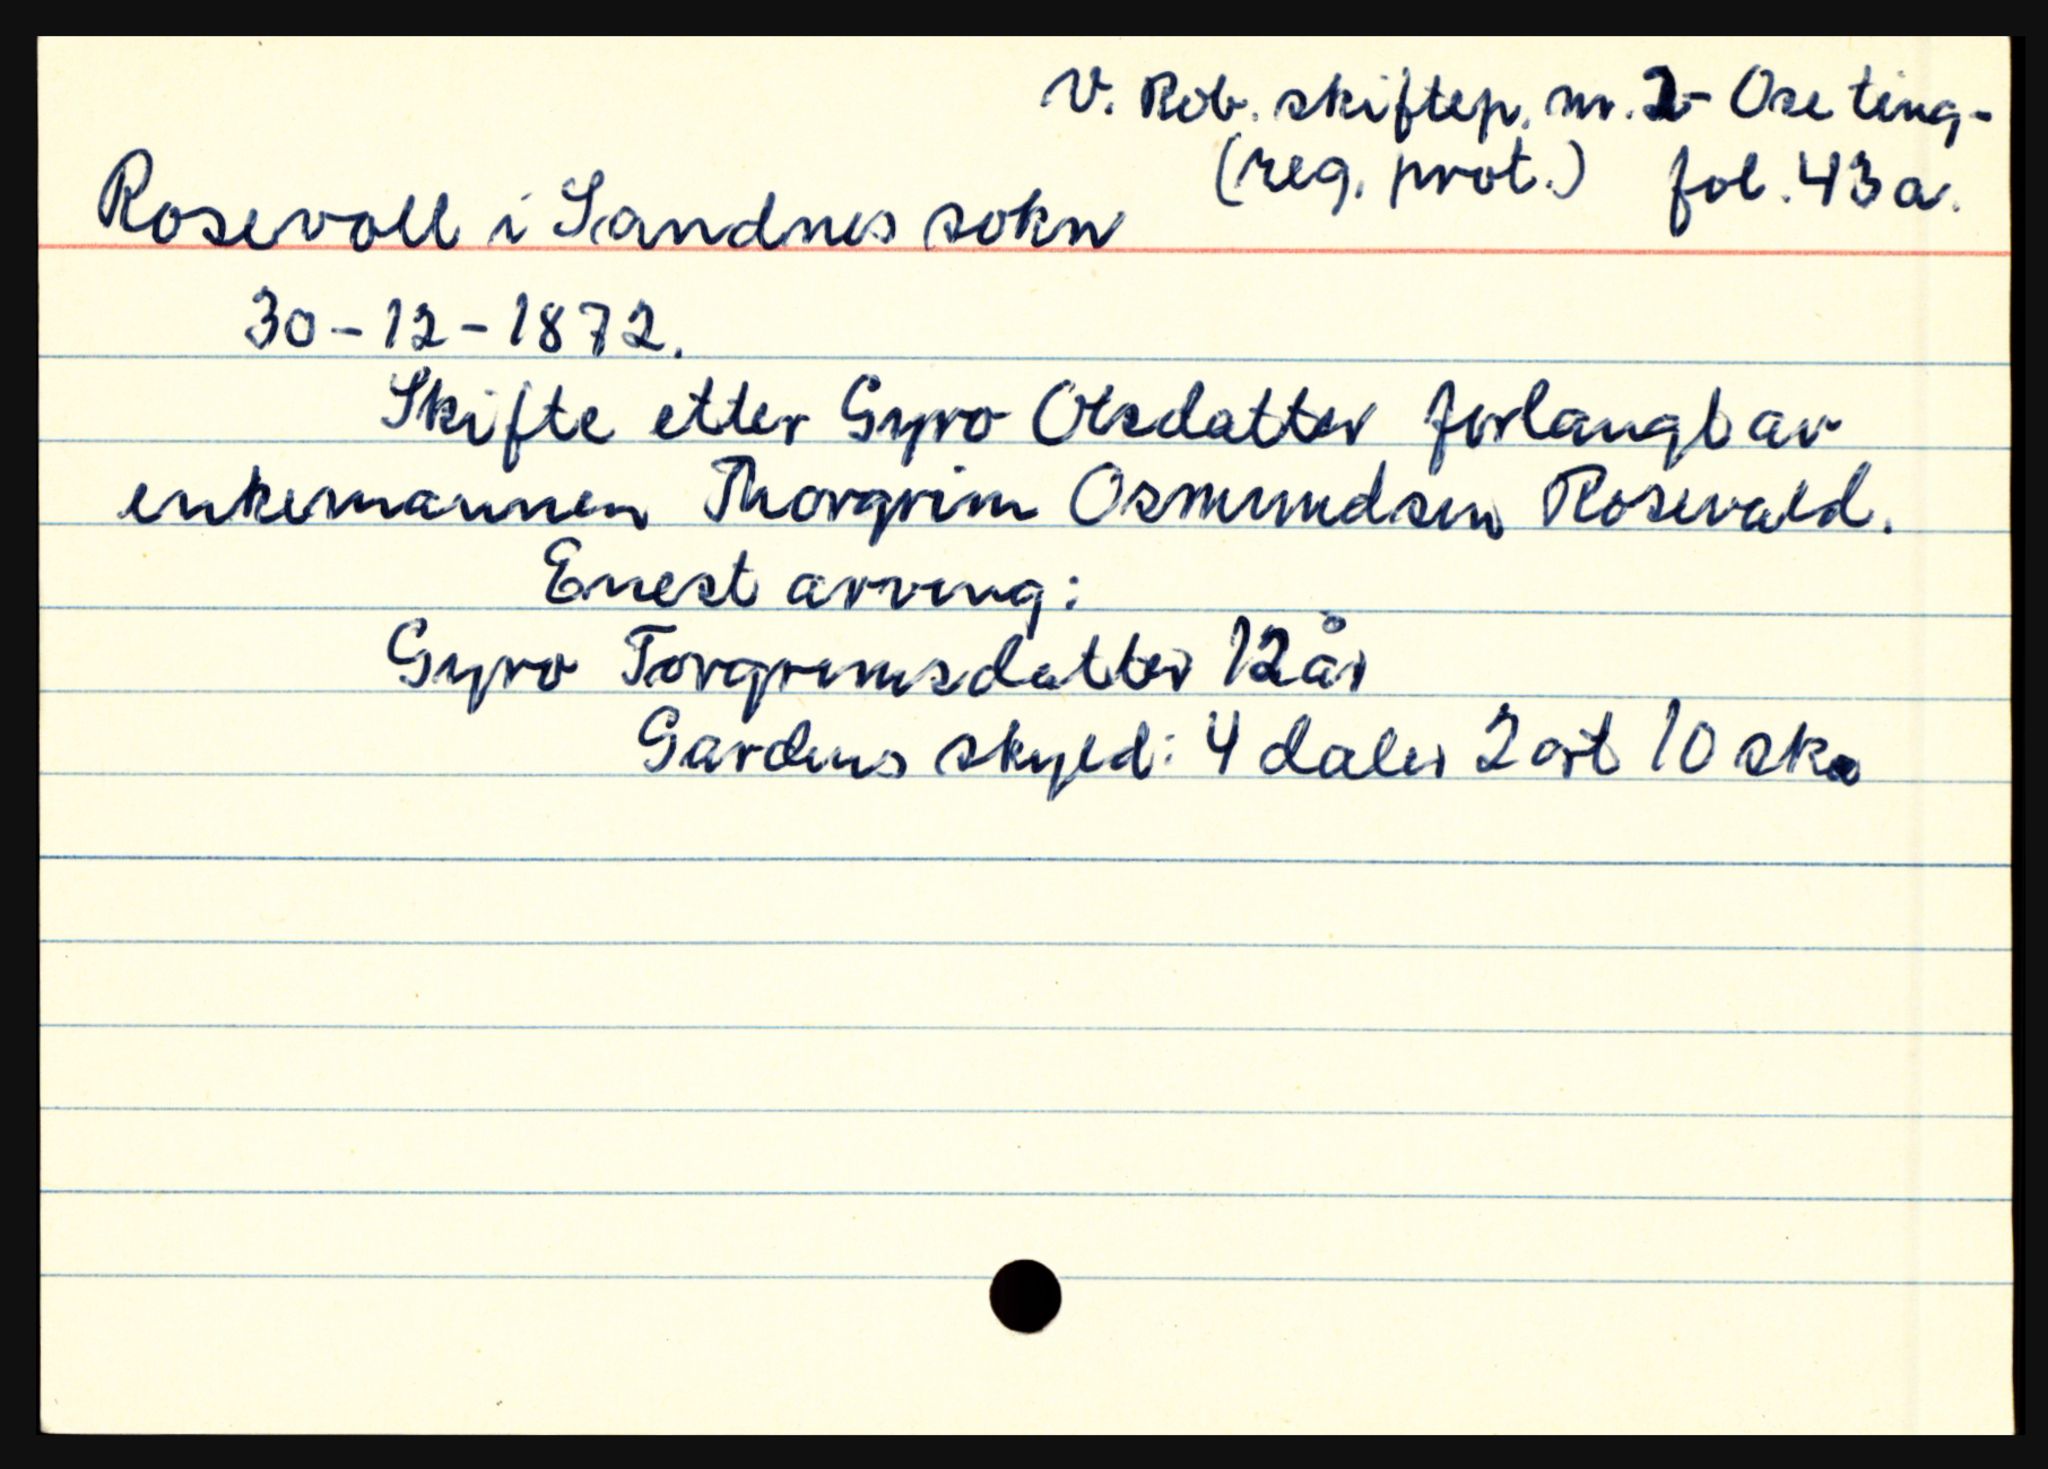 V. Rob. skiftep. nr. 2 - Ose ting-
(reg. prot.) fol. 43a.
Rosevoll i Sandnes sokn
30-12-1872.
Skifte etter Gyro Olsdatter forlangt av
enkemannen Thorgrim Osmundsen Rosevald.
Enest arving:
Gyro Torgrimsdatter 12 år
Gardens skyld: 4 daler 2 ort 10 sk.